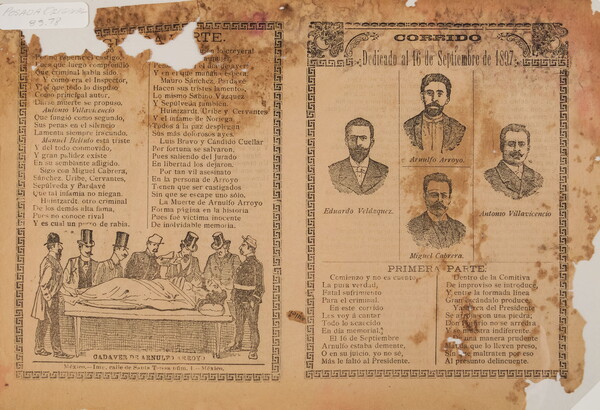 POSADA ORIGINAL
PARTE.
no faltará el castigo,
Que luego comprendió
Que criminal había sido
Y como era el Inspector,
Y el que todo lo dispuso
Como principal autor,
Darse muerte se propuso.
Antonio Villavicencio
Que fungió como segundo,
Sus penas en el silencio
Lamenta siempre iracundo.
Manuel Bellido está triste
Y del todo conmovido,
Y gran palidez existe
En su semblante afligido.
Sigo con Miguel Cabrera,
Sánchez, Uribe, Cervantes,
Sepúlveda y Pardavé
Que tal infamia no niegan.
Hointzardt, otro criminal
De los demás alta fama,
Pues no conoce rival
Y es cual un perro de rabia.
Y en el que mañana espera,
Mauro Sánchez, Pardavé
Hacen sus tristes lamentos,
Lo mismo Sabino Vázquez
Y Sepúlveda también.
Huintzardt, Uribe y Cervantes
Y el infame de Noriega,
Todos á la paz despliegan
Sus más dolorosos ayes.
Luis Bravo y Cándido Cuellar
Por fortuna se salvaron,
Pues saliendo del jurado
En libertad los dejaron.
Por tan vil asesinato
En la persona de Arroyo
Tienen que ser castigados
Sin que se escape uno sólo.
La Muerte de Arnulfo Arroyo
Forma página en la historia
Pues fué víctima inocente
De inolvidable memoria.
CADAVER DE ARNULFO ARROYO
México.—Imp. calle de Santa Teresa núm. 1.—México.
CORRIDO
Dedicado al 16 de Septiembre de 1897.
Arnulfo Arroyo.
Eduardo Velázquez.
Antonio Villavicencio
Miguel Cabrera.
PRIMERA PARTE.
Comienzo y no es cuento
La pura verdad,
Fatal sufrimento
Para el criminal.
En este corrido
Les voy á cantar
Todo lo acaecido
En día memorial.
El 16 de Septiembre
Arnulfo estaba demente,
O en su juicio, yo no sé,
Más le faltó al Presidente.
Dentro de la Comitiva
De improviso se introduce,
Y entre la formada línea
Gran escándalo produce.
Y cerca del Presidente
Se agacha con una piedra,
Don Porfirio no se arredra
Y se muestra indiferente.
una manera prudente
Manda que lo lleven preso,
Sin que maltraten por eso
Al presunto delincuente.